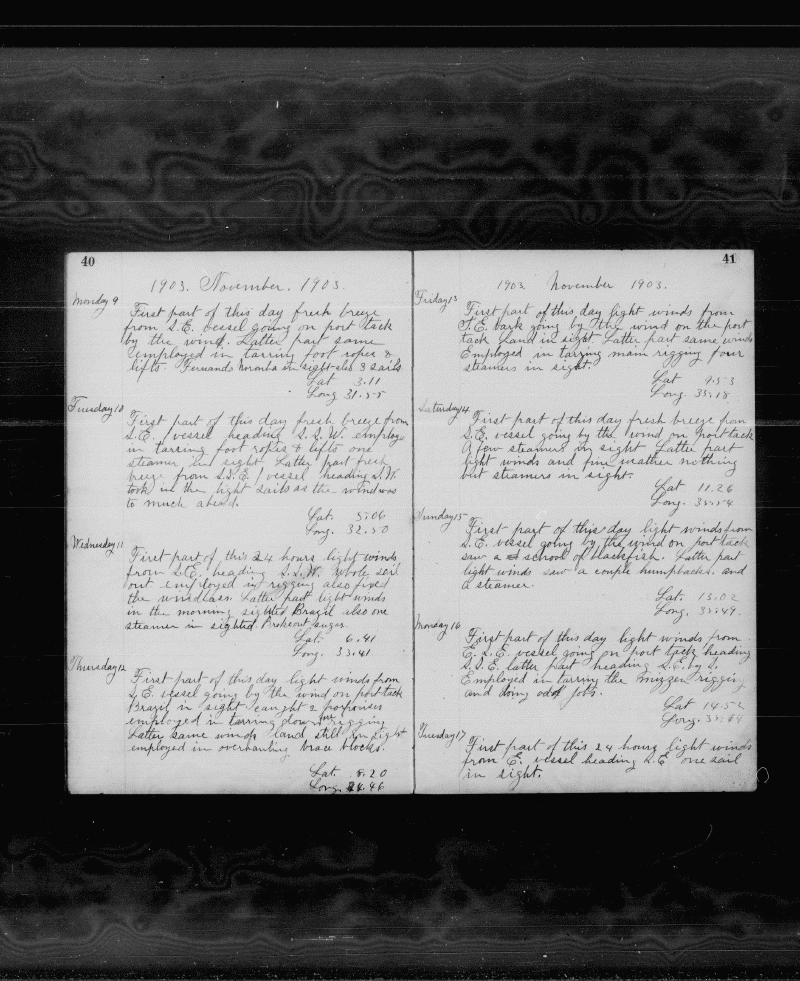 40
1903. November. 1903.
Monday 9
First part of this day fresh breeze
from S.E. vessel going on port tack
by the wind. Latter part same
employed in tarring foot ropes &
lifts. Fernando noronha in sight also 3 sails
Lat 3.11
Long 31.55
Tuesday 10
First part of this day fresh breeze from
S.E. vessel heading S.S.W. employe
in tarring foot ropes & lifts one
steamer in sight Latter part fresh
breeze from S.S.E. vessel heading S.W.
took in the light sails as the wind was
to much ahead.
Lat. 5.06
Long. 32.50
Wednesday 11
First part of this 24 hours light winds
from S.E. heading S.S.W. whole sail
out employed in rigging also fixed
the windlass Latter part light winds
in the morning sighted Brazil also one
steamer in sighted. Brokeout sugar.
Lat. 6.41
Long. 33.41
Thursday 12
First part of this day light winds from
S.E. vessel going by the wind on port tack
Brazil in sight caught 2 porpoises
employed in tarring down fore rigging
Latter same winds land still in sight
employed in overhauling brace blocks.
Lat. 8.20
Long. 34.46
41
1903 November 1903.
Friday 13
First part of this day light winds from
S.E. bark going by the wind on the port
tack Land in sight Latter part same winds
Employed in tarring main rigging four
steamers in sight.
Lat 9.53
Long. 35.18
Saturday 14
First part of this day fresh breeze from
S.E. vessel going by the wind on port tack
A few steamers in sight Latter part
light winds and fine weather nothing
but steamers in sight.
Lat 11.26
Long. 35.54
Sunday 15
First part of this day light winds from
S.E. vessel going by the wind on port tack
saw a school of blackfish. Latter part
light winds saw a couple humpbacks and
a steamer.
Lat. 13.02
Long. 35.49.
Monday 16
First part of this day light winds from
E.S.E. vessel going on port tack heading
S.S.E. latter part heading S.E. by S.
Employed in tarring the mizzen rigging
and doing odd jobs.
Lat 14.52
Long. 35.44
Tuesday 17
First part of this 24 hours light winds
from E. vessel heading S.E one sail
in sight.